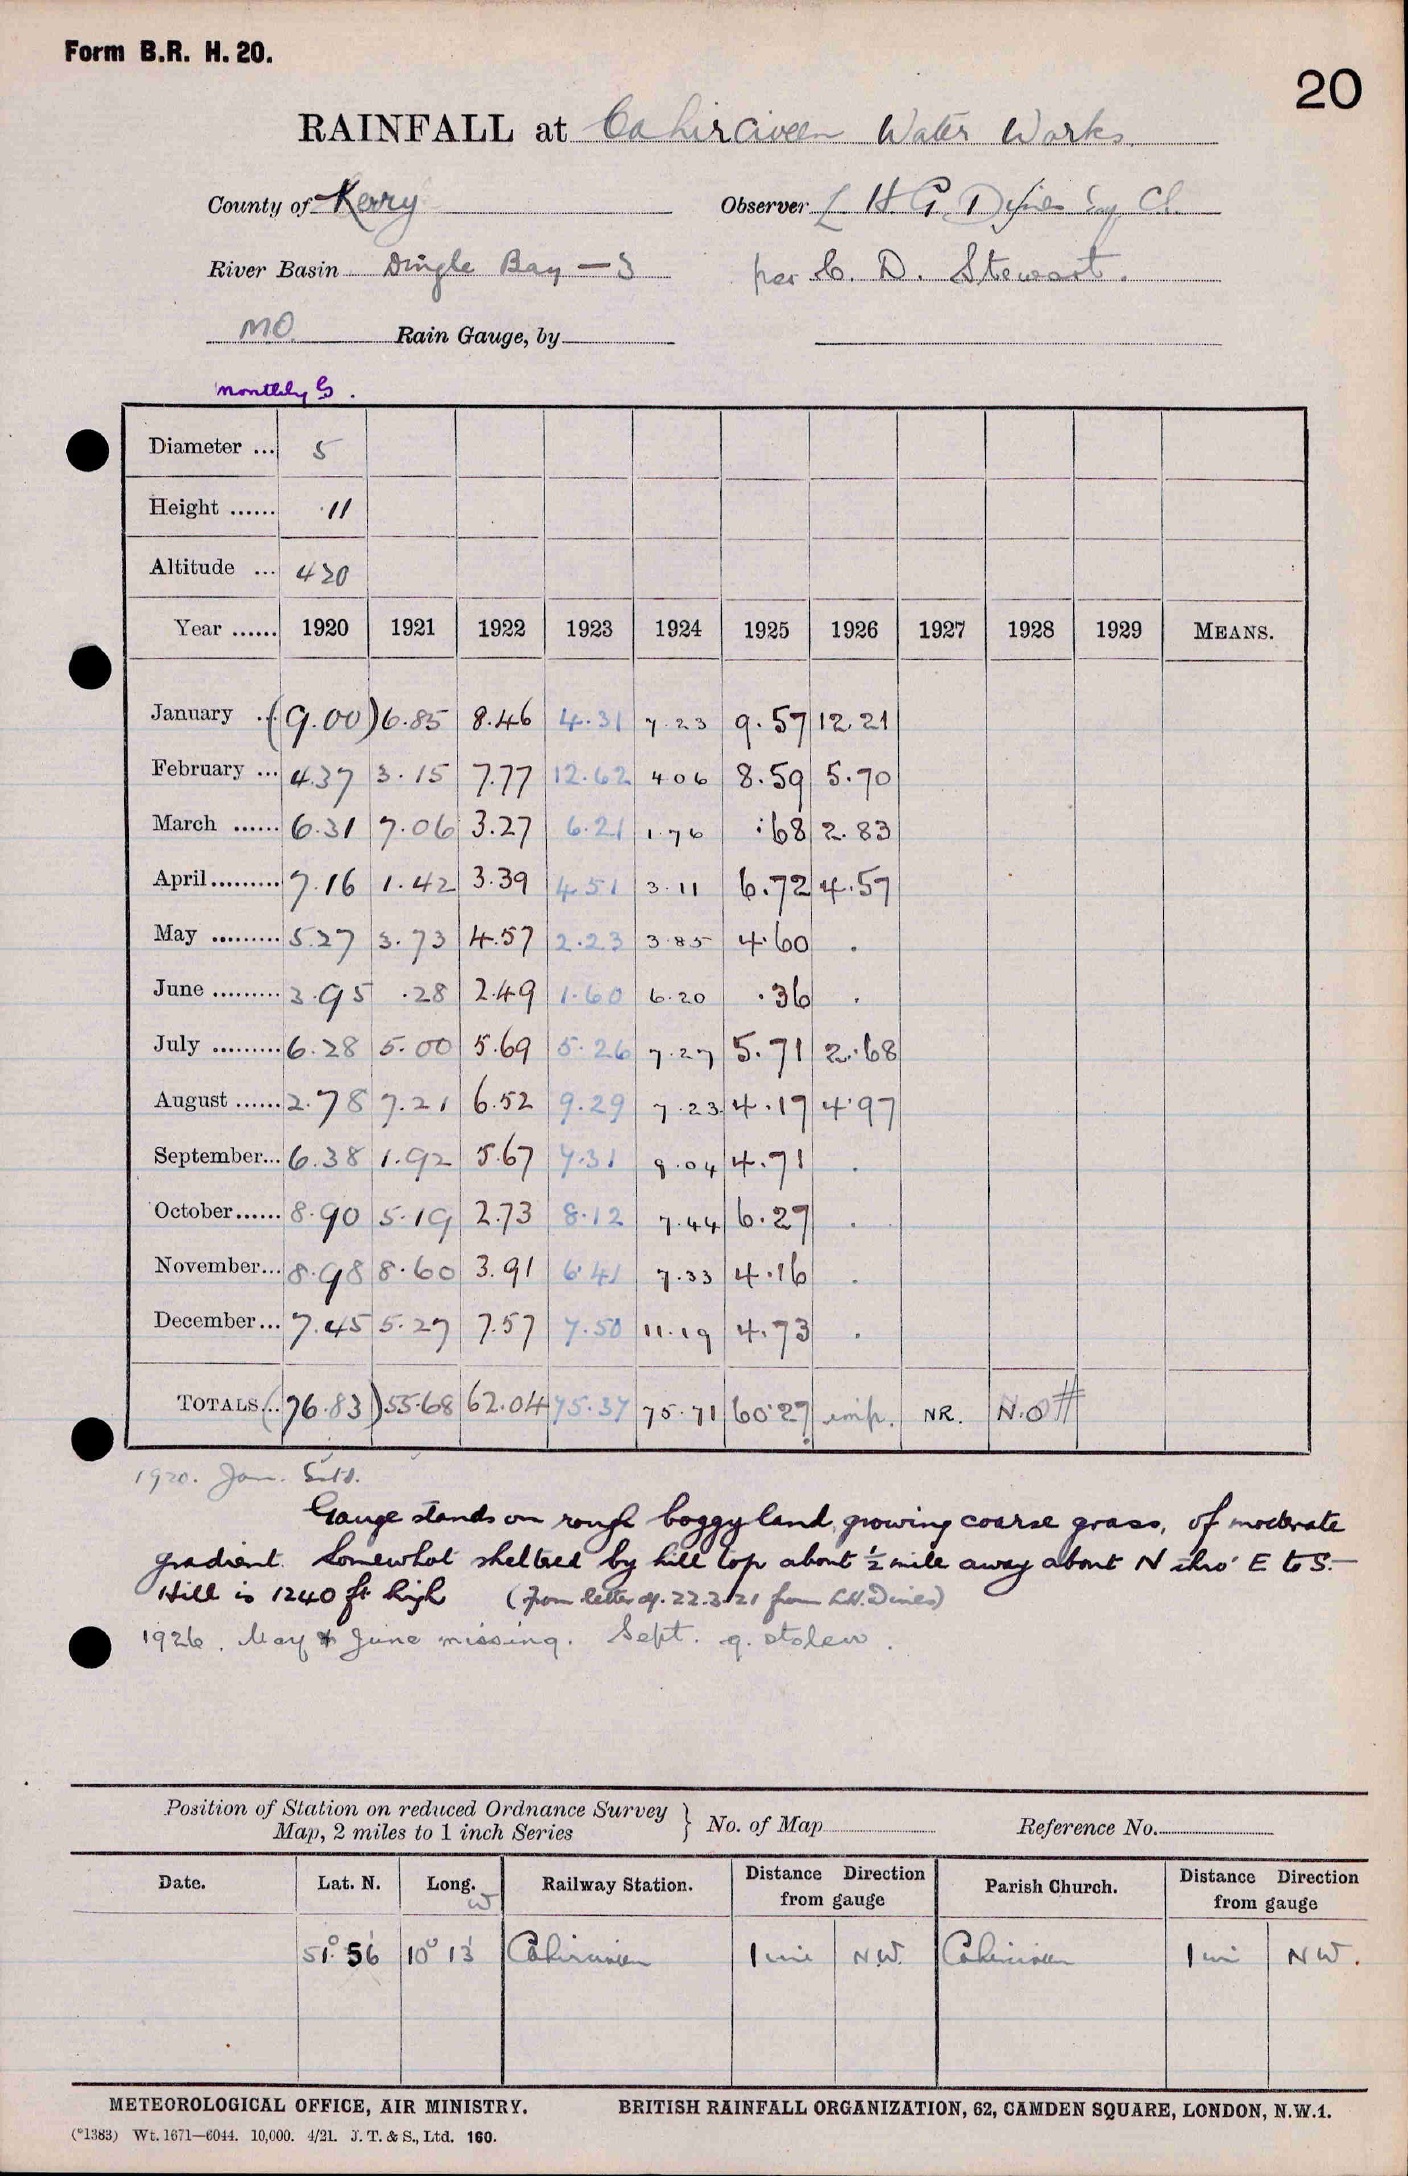 Form B.R. H. 20.
20
RAINFALL at Cahirciveen Water Works.
County of Kerry Observer L H G Dines Esq
River Basin Dingle Bay - S per C. D. Stewart.
MO. Rain Gauge, by
Monthly G.
Diameter ... 5
Height ...... ·11
Altitude ... 420
Year ...... 1920 1921 1922 1923 1924 1925 1926 1927 1928 1929 MEANS.
January ... (9.00) 6.85 8.46 4.31 7.23 9.57 12.21
February ... 4.37 3.15 7.77 12.62 4.06 8.59 5.70
March ...... 6.31 7.06 3.27 6.21 1.76 .68 2.83
April ......... 7.16 1.42 3.39 4.51 3.11 6.72 4.57
May ......... 5.27 3.73 4.57 2.23 3.85 4.60 .
June ......... 3.95 .28 2.49 1.60 6.20 .36 .
July ......... 6.28 5.00 5.69 5.26 7.27 5.71 2.68
August ...... 2.78 7.21 6.52 9.29 7.23 4.17 4.97
September... 6.38 1.92 5.67 7.31 9.04 4.71 .
October...... 8.90 5.19 2.73 8.12 7.44 6.27 .
November... 8.98 8.60 3.91 6.41 7.33 4.16 .
December... 7.45 5.27 7.57 7.50 11.19 4.73 .
TOTALS... (76.83) 55.68 62.04 75.37 75.71 60.27 imp. NR. N.O #
1920. Jan. Estd.
Gauge stands on rough boggy land, growing coarse grass, of moderate
gradient. Somewhat sheltered by hill top about ½ mile away about N thro' E to S.—
Hill is 1240 ft high (from letter of. 22.3.21 from L.H. Dines)
1926. May & June missing. Sept. g. stolen.
Position of Station on reduced Ordnance Survey
Map, 2 miles to 1 inch Series } No. of Map Reference No.
Date. Lat. N. Long. W Railway Station. Distance Direction from gauge Parish Church. Distance Direction from gauge
51° 56' 10° 13' Cahirciveen 1 mi N.W. Cahirciveen 1 mi N.W.
METEOROLOGICAL OFFICE, AIR MINISTRY. BRITISH RAINFALL ORGANIZATION, 62, CAMDEN SQUARE, LONDON, N.W.1.
(*1383) Wt. 1671—6044. 10,000. 4/21. J. T. & S., Ltd. 160.